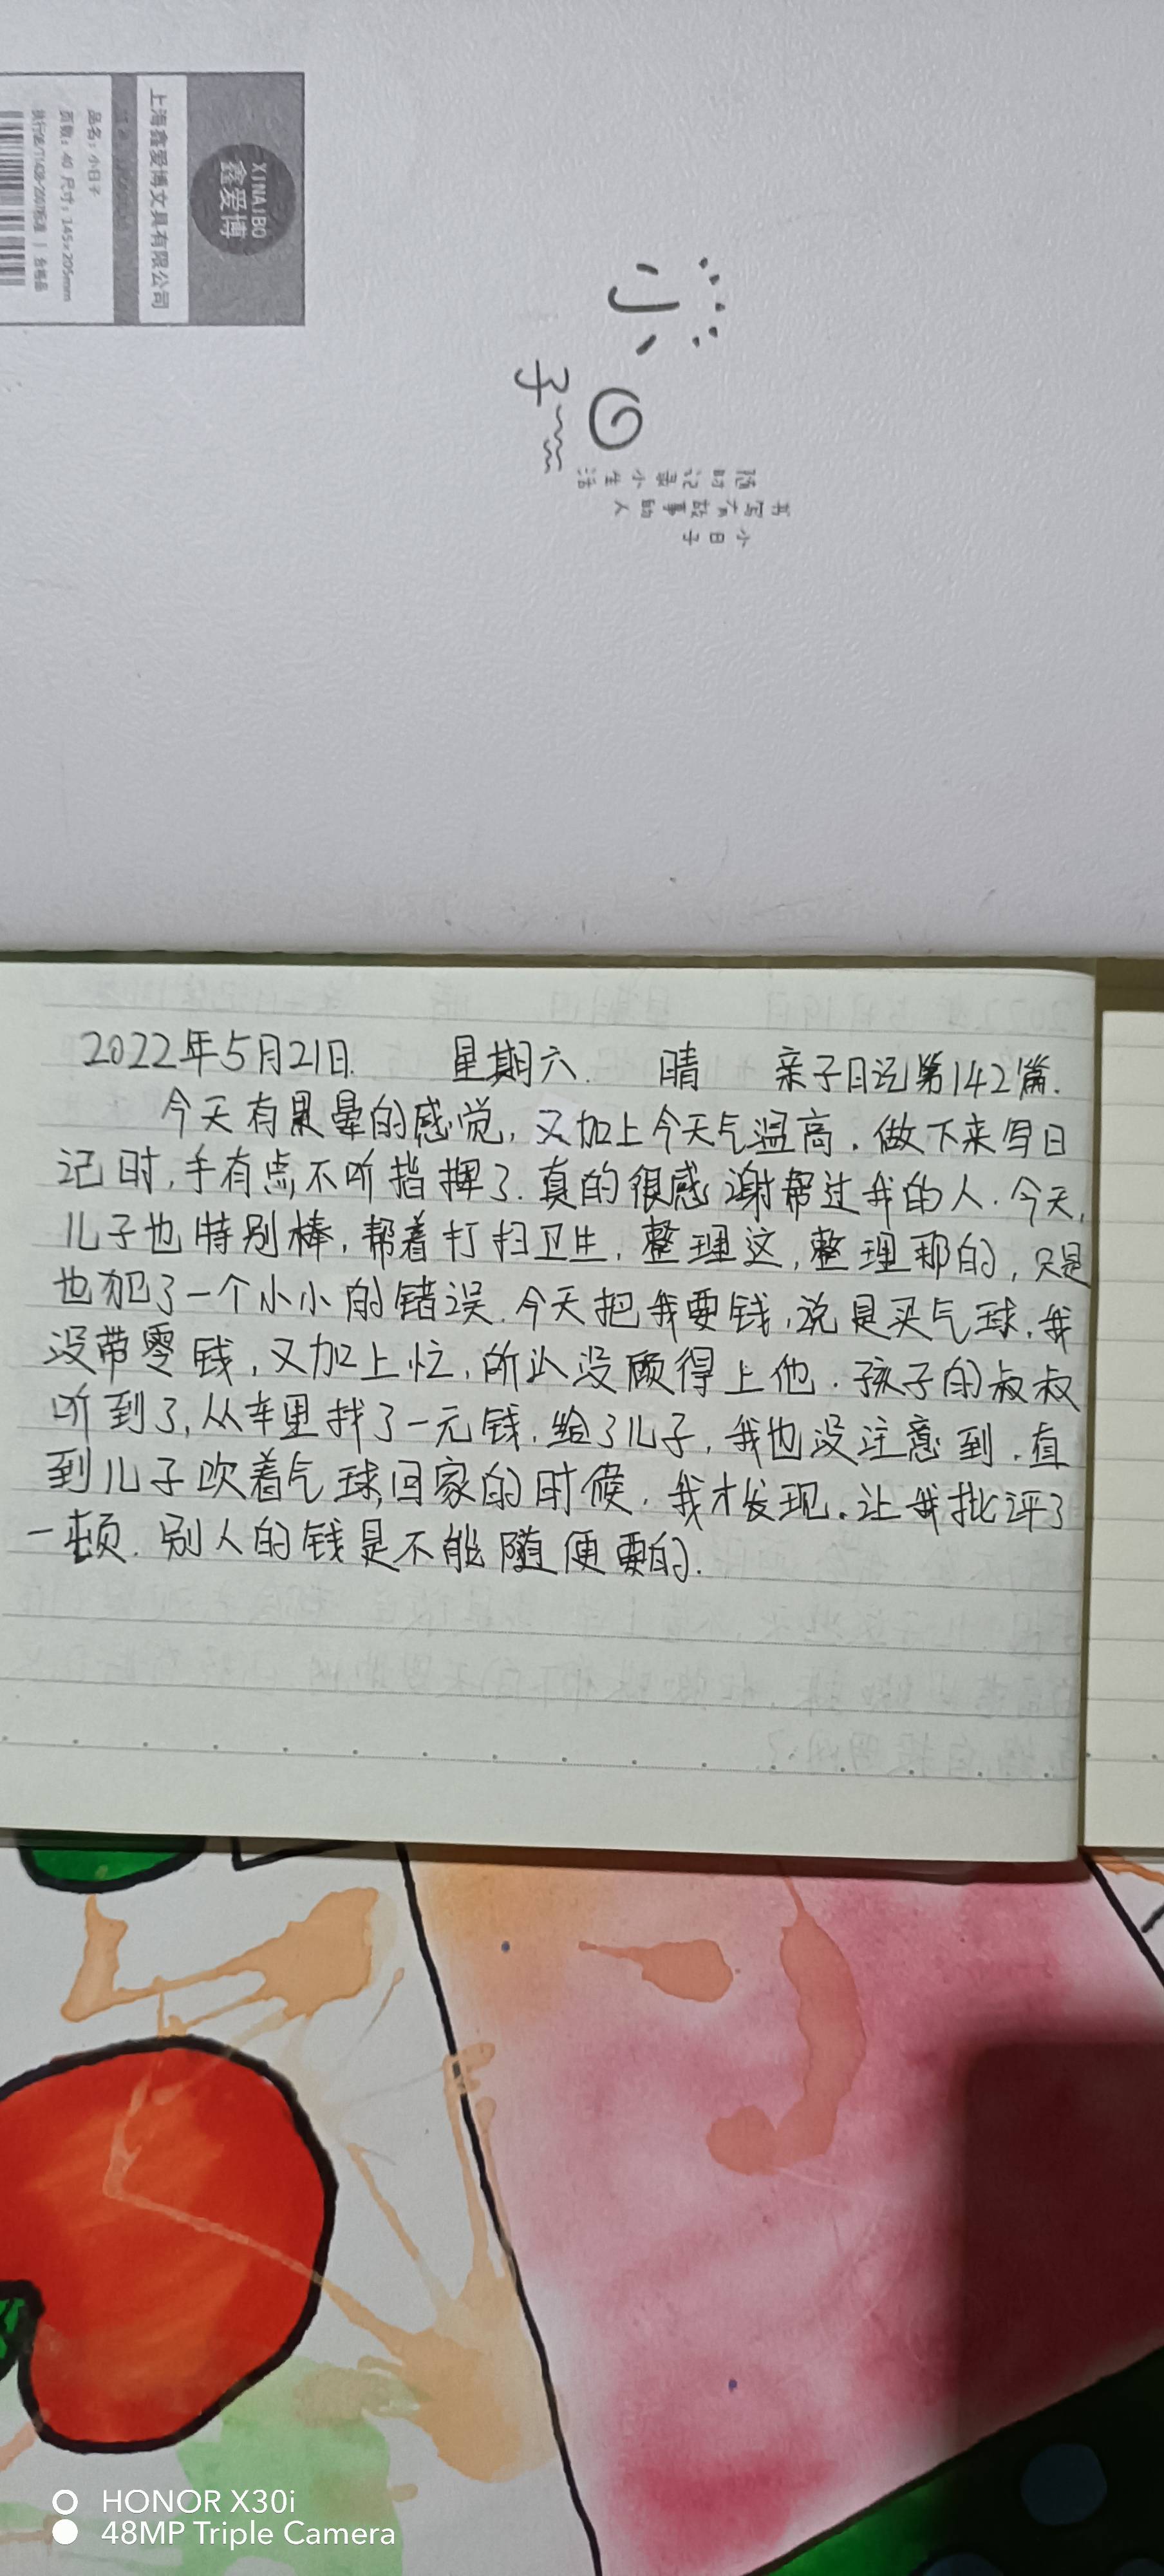 XINAIBO
鑫爱博
上海鑫爱博文具有限公司
品名：小日子
页数：40 尺寸：145×205mm
合格品
小日子
随时记录小生活
书写有故事的人
小日子
2022年5月21日. 星期六. 晴 亲子日记第142篇.
今天有累晕的感觉，又加上今天气温高．做下来写日
记时，手有点不听指挥了．真的很感谢帮过我的人．今天，
儿子也特别棒，帮着打扫卫生，整理这，整理那的，只是
也犯了一个小小的错误．今天把我要钱，说是买气球，我
没带零钱，又加上忙，所以没顾得上他．孩子的叔叔
听到了，从车里找了一元钱，给了儿子，我也没注意到．直
到儿子吹着气球回家的时候，我才发现．让我批评了
一顿．别人的钱是不能随便要的．
HONOR X30i
48MP Triple Camera